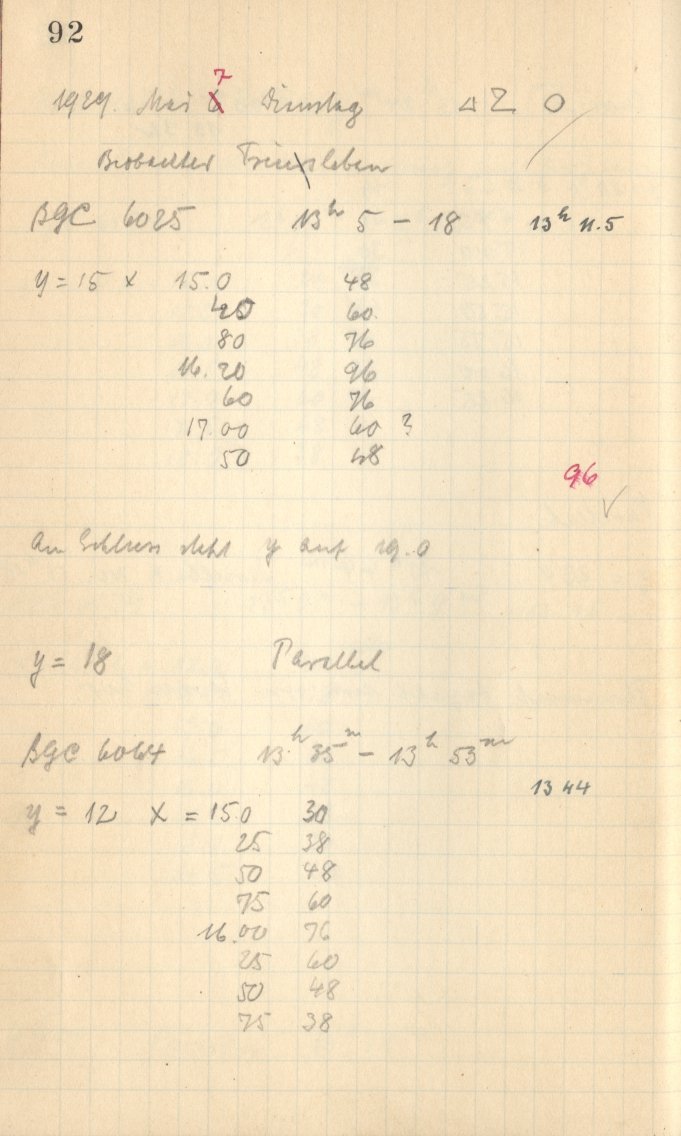 92
1929. Mai 7 Dienstag △Z 0
Beobachter
BGC 6025 13h 5 - 18 13h 11.5
y = 15 x 15.0 48
40 60
80 76
16.20 96
60 76
17.00 60 ?
50 48
96 ✓
Am Schluss steht y auf 19.0
y = 18 Parallel
BGC 6064 13h 35m - 13h 53m
13 44
y = 12 x = 15.0 30
25 38
50 48
75 60
16.00 76
25 60
50 48
75 38